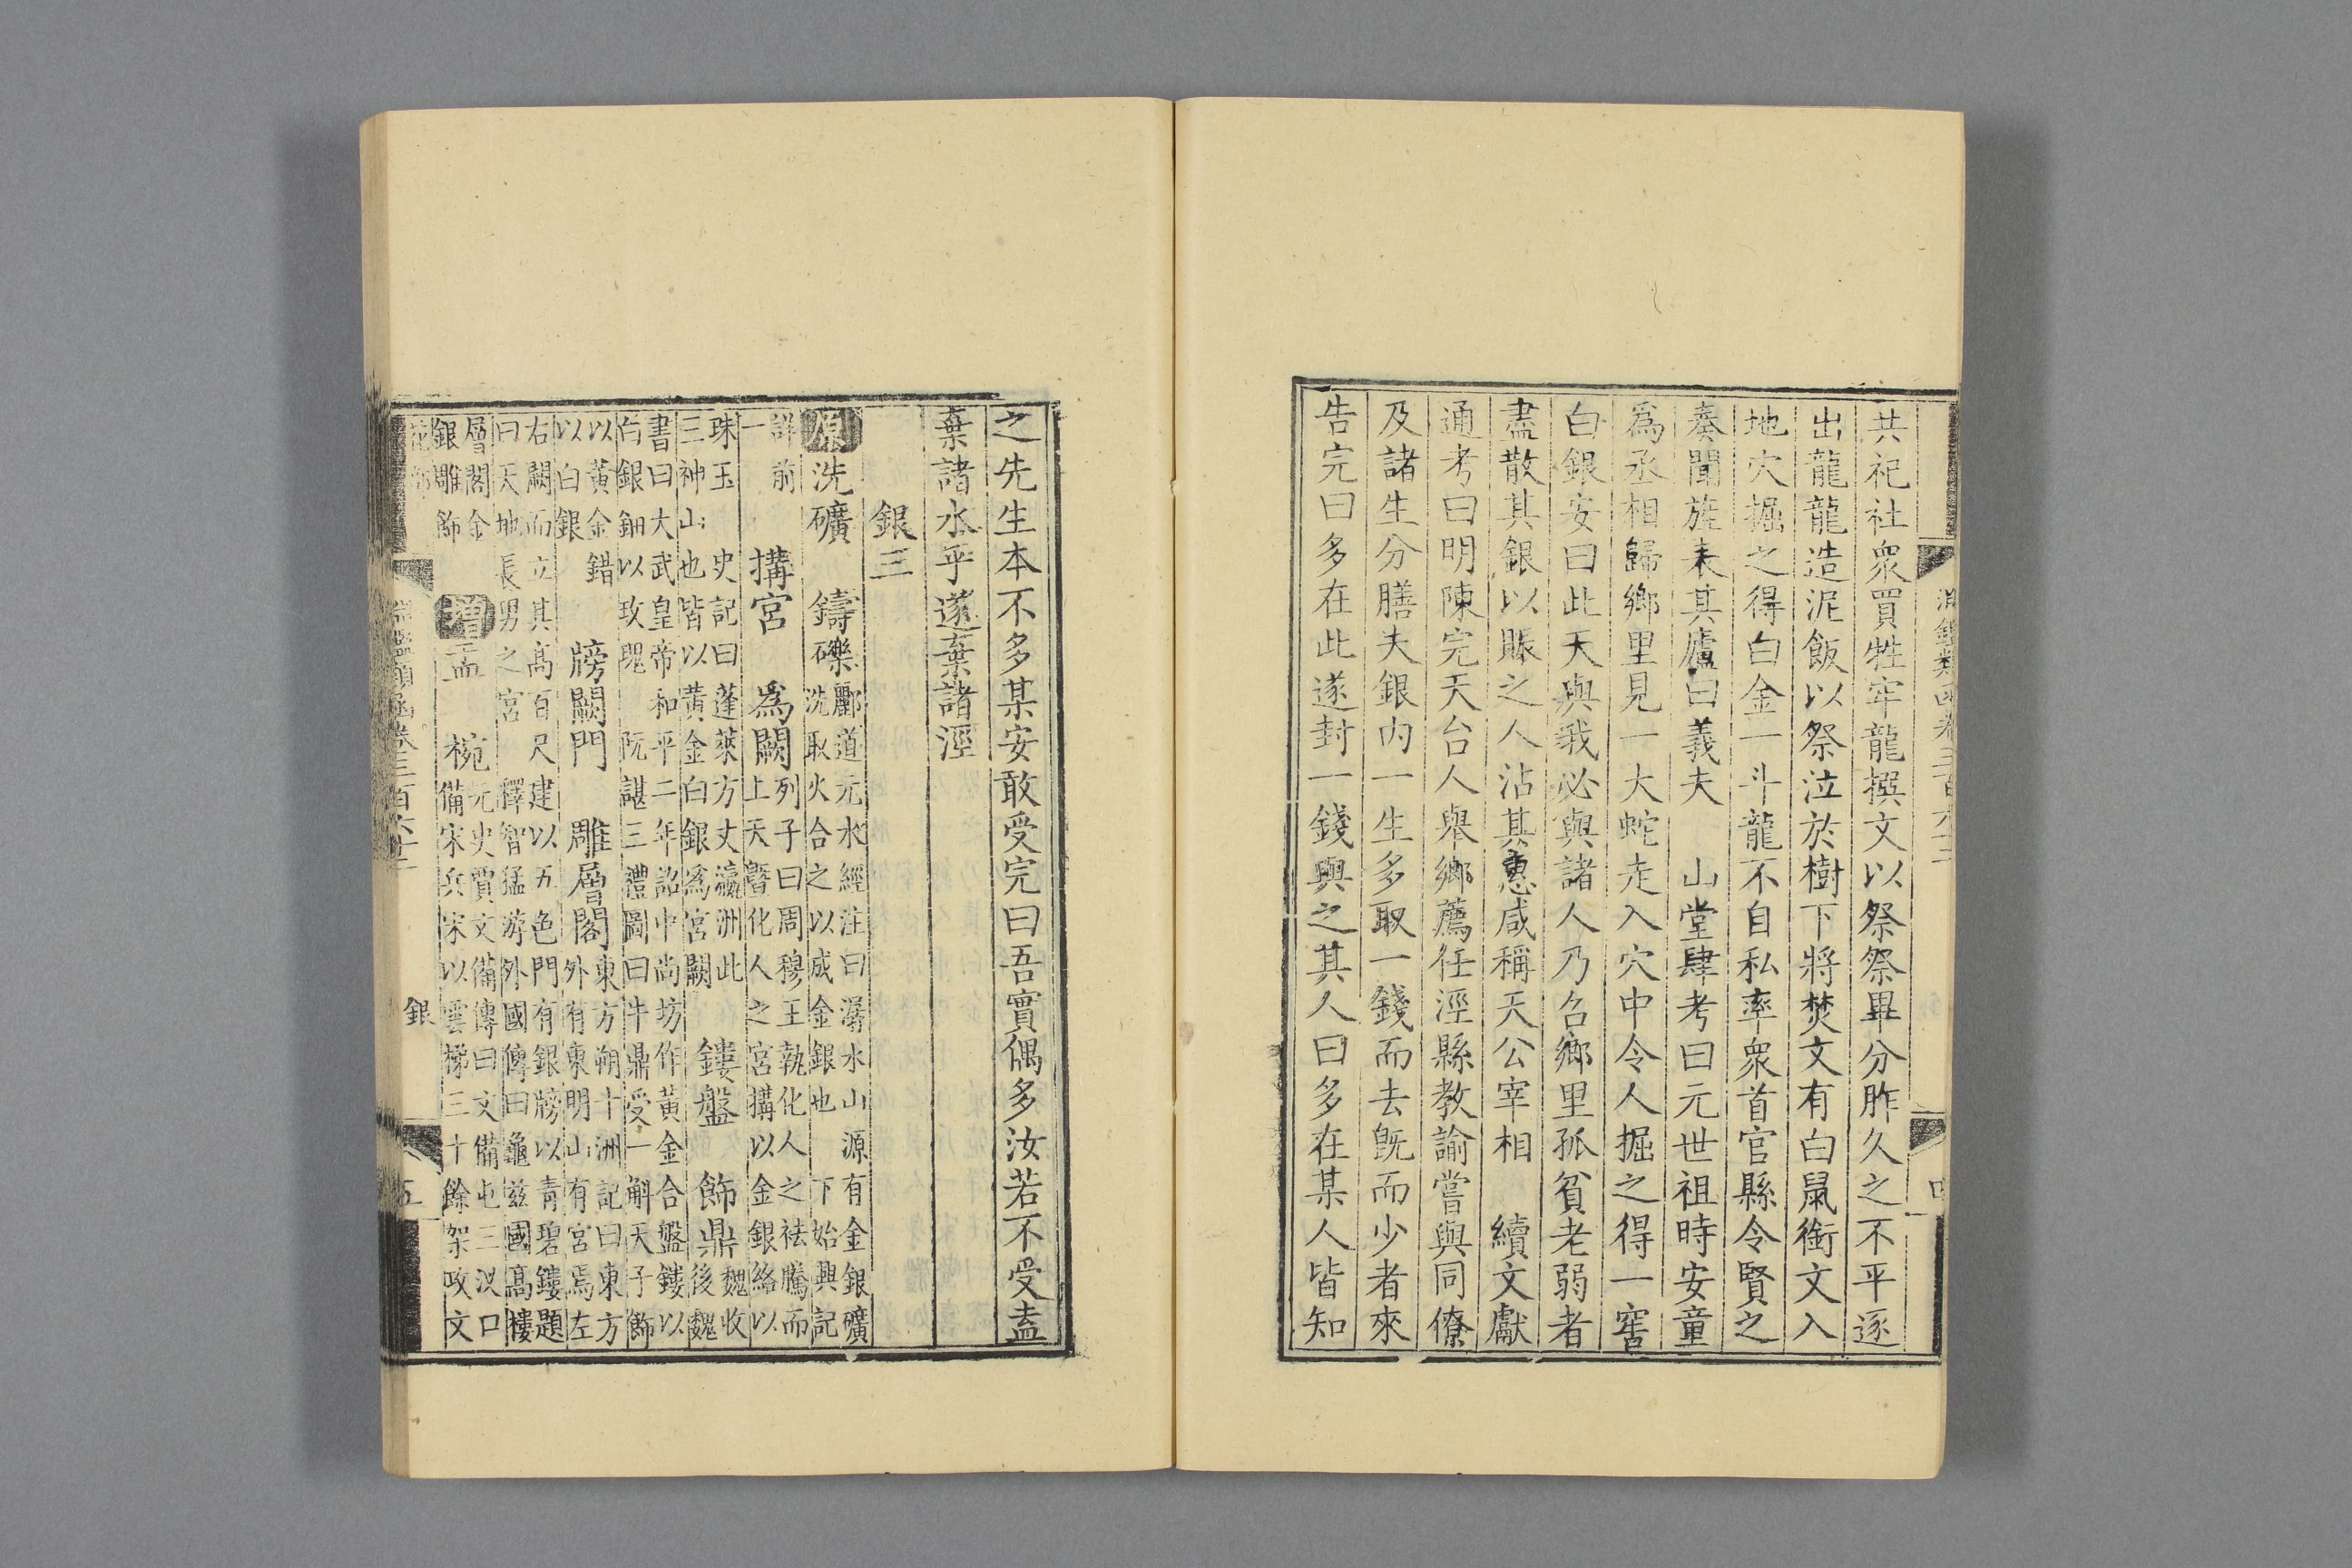 共祀社眾買牲牢龍撰文以祭祭畢分胙久之不平逐
出龍龍造泥飯以祭泣於樹下將焚文有白鼠銜文入
地穴掘之得白金一斗龍不自私率眾首官縣令賢之
奏聞旌表其廬曰義夫　山堂肆考曰元世祖時安童
為丞相歸鄉里見一大蛇走入穴中令人掘之得一窖
白銀安曰此天與我必與諸人乃名鄉里孤貧老弱者
盡散其銀以賑之人沾其惠咸稱天公宰相　續文獻
通考曰明陳完天台人舉鄉薦任涇縣教諭嘗與同僚
及諸生分膳夫銀內一生多取一錢而去旣而少者來
告完曰多在此遂封一錢與之其人曰多在某人皆知
之先生本不多某安敢受完曰吾實偶多汝若不受盍
棄諸水乎遂棄諸涇
銀三
原洗礦　鑄礫酈道元水經注曰潺水山源有金銀礦
洗取火合之以成金銀也　下始興記
詳前
一　搆宮　為闕列子曰周穆王執化人之袪騰而
上天曁化人之宮搆以金銀絡以
珠玉　史記曰蓬萊方丈瀛洲此
三神山也皆以黃金白銀為宮闕　鏤盤　飾鼎魏收
後魏
書曰大武皇帝和平二年詔中尚坊作黃金合盤鏤以
白銀鈿以玫瑰　阮諶三禮圖曰牛鼎受一斛天子飾
以黃金錯
以白銀　牓闕門　雕層閣東方朔十洲記曰東方
外有東明山有宮焉左
右闕而立其高百尺建以五色門有銀牓以青碧鏤題
曰天地長男之宮　釋智猛游外國傳曰龜茲國高樓
層閣金
銀雕飾　增盂　椀元史賈文備傳曰文備屯三汊口
備宋兵宋以雲梯三十餘架攻文
銀
五